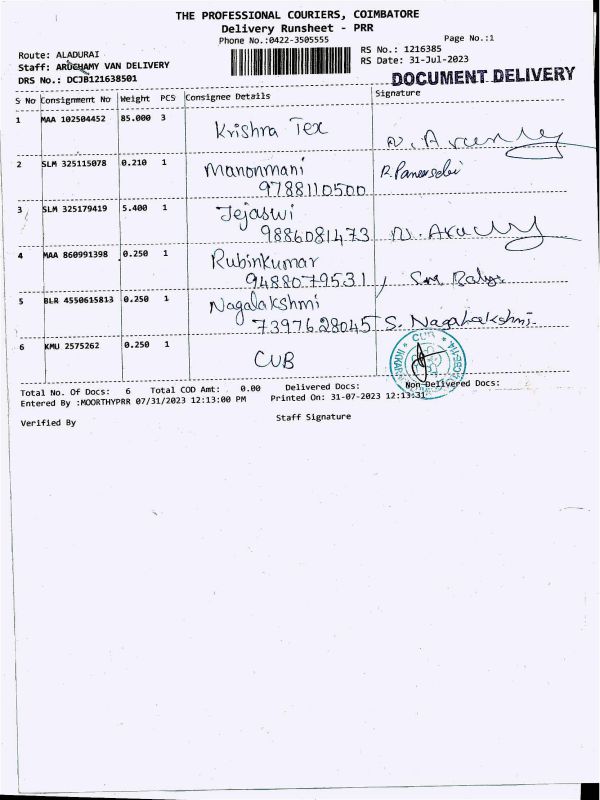 THE PROFESSIONAL COURIERS, COIMBATORE
Delivery Runsheet - PRR
Phone No.:0422-3505555
Page No.:1
Route: ALADURAI
RS No.: 1216385
Staff: VAN DELIVERY
RS Date: 31-Jul-2023
DRS No.: DCJB121638501
DOCUMENT DELIVERY
S No Consignment No Weight PCS Consignee Details Signature
1 MAA 102504452 85.000 3 Krishna Tex
2 SLM 325115078 0.210 1 Manonmani
9788110500
3 SLM 325179419 5.400 1 Tejaswi
9886081473
4 MAA 860991398 0.250 1 Rubinkumar
9488079531
5 BLR 4550615813 0.250 1 Nagalakshmi
7397628045 S. Nagalakshmi
6 KMU 2575262 0.250 1 CUB
CUB
Total No. Of Docs: 6 Total COD Amt: 0.00 Delivered Docs: Non-Delivered Docs:
Entered By :MOORTHYPRR 07/31/2023 12:13:00 PM Printed On: 31-07-2023 12:13:31
Verified By Staff Signature